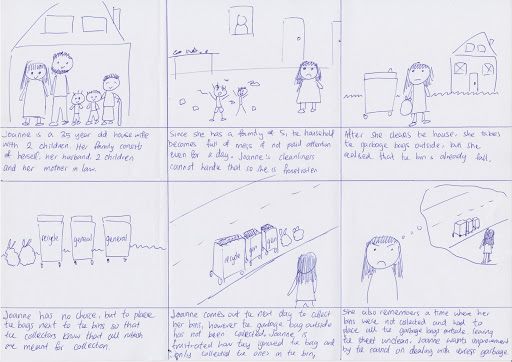 Joanne is a 35 year old house wife
with 2 children. Her family consists
of herself, her husband, 2 children
and her mother in law.
Since she has a family of 5, the household
becomes full of mess if not paid attention
even for a day. Joanne's cleanliness
cannot handle that so she is
After she cleans the house, she takes
the garbage bags outside, but she
realised that the bin is already full.
recycle
general
general
Joanne has no choice, but to place
the bags next to the bins so that
the collectors know that all rubbish
are meant for collection.
recycle
gen
gen
Joanne comes out the next day to collect
her bins, however the garbage bag outside
has not been collected. Joanne is
frustrated how they ignored the bag and
only collected the ones in the bin,
She also remembers a time where her
bins were not collected and had to
place all the garbage bags outside leaving
the street unclean. Joanne wants improvement
by the council on dealing with excess garbage.